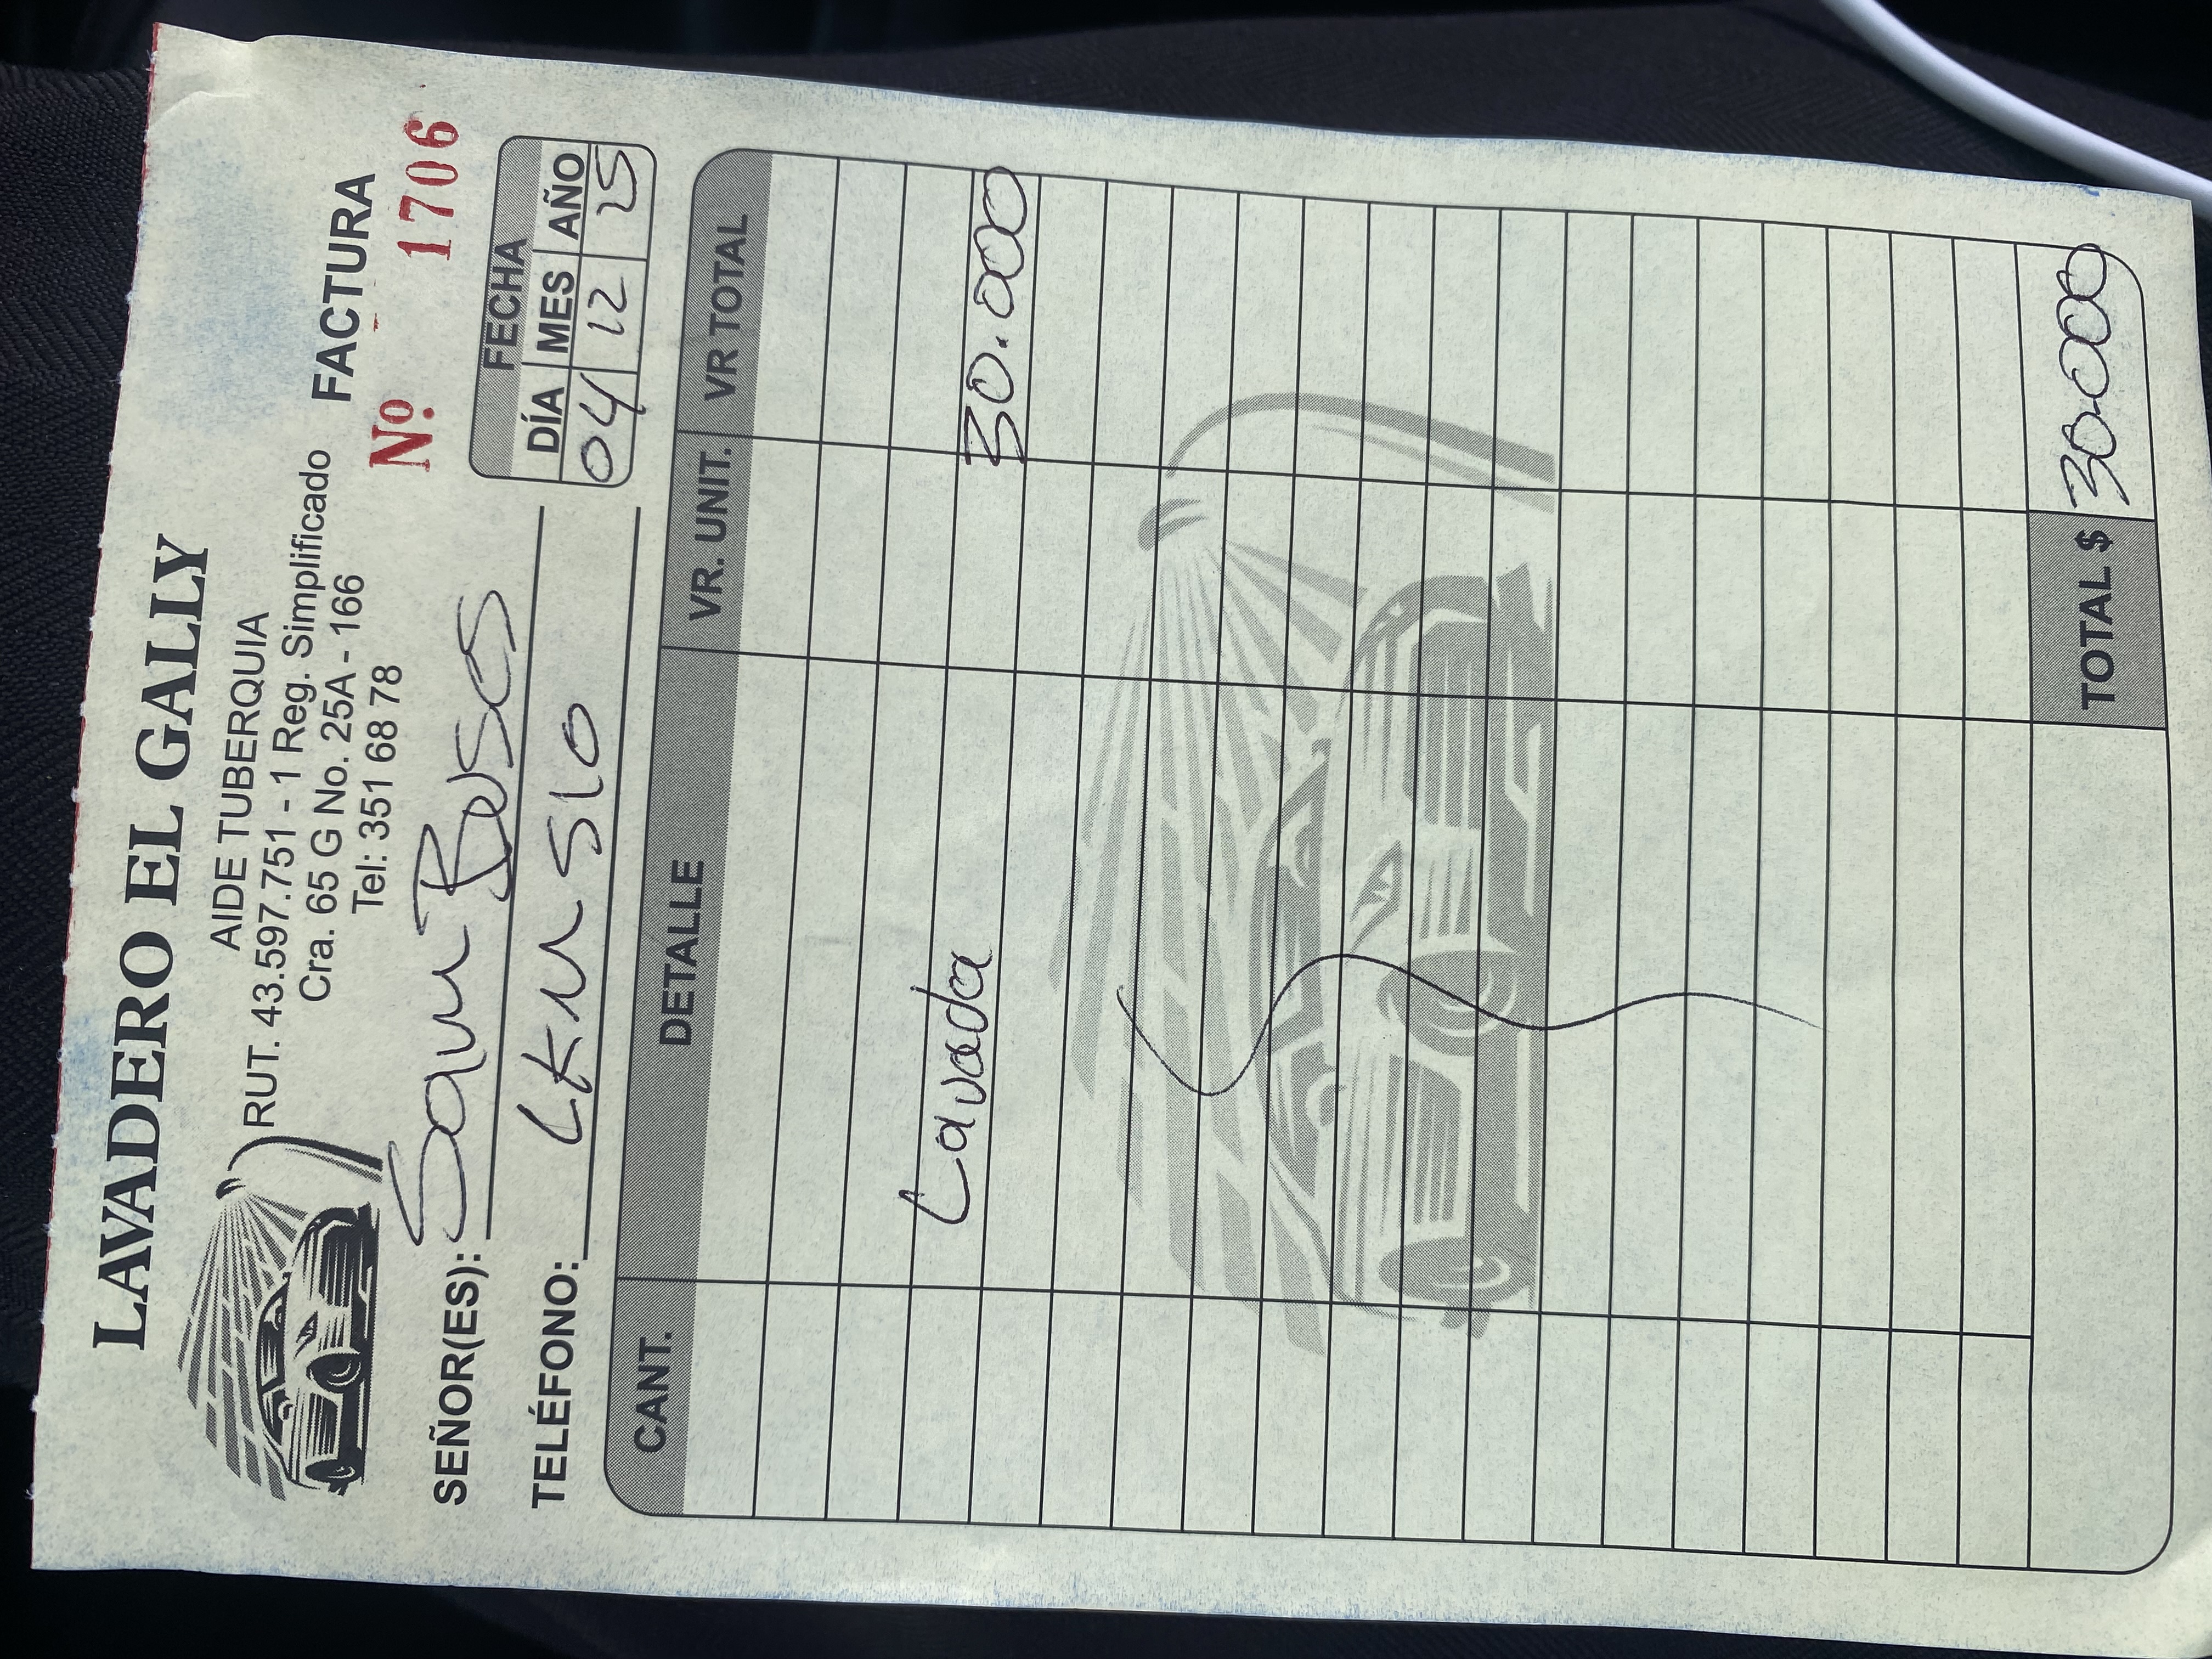 LAVADERO EL GALLY
AIDE TUBERQUIA
RUT. 43.597.751 - 1 Reg. Simplificado
Cra. 65 G No. 25A - 166
Tel: 351 68 78
FACTURA
Nº. 1706
SEÑOR(ES):
TELÉFONO: LKU 510
FECHA
DÍA MES AÑO
04 12 25
CANT. DETALLE VR. UNIT. VR TOTAL
Lavada 30.000
TOTAL $ 30.000